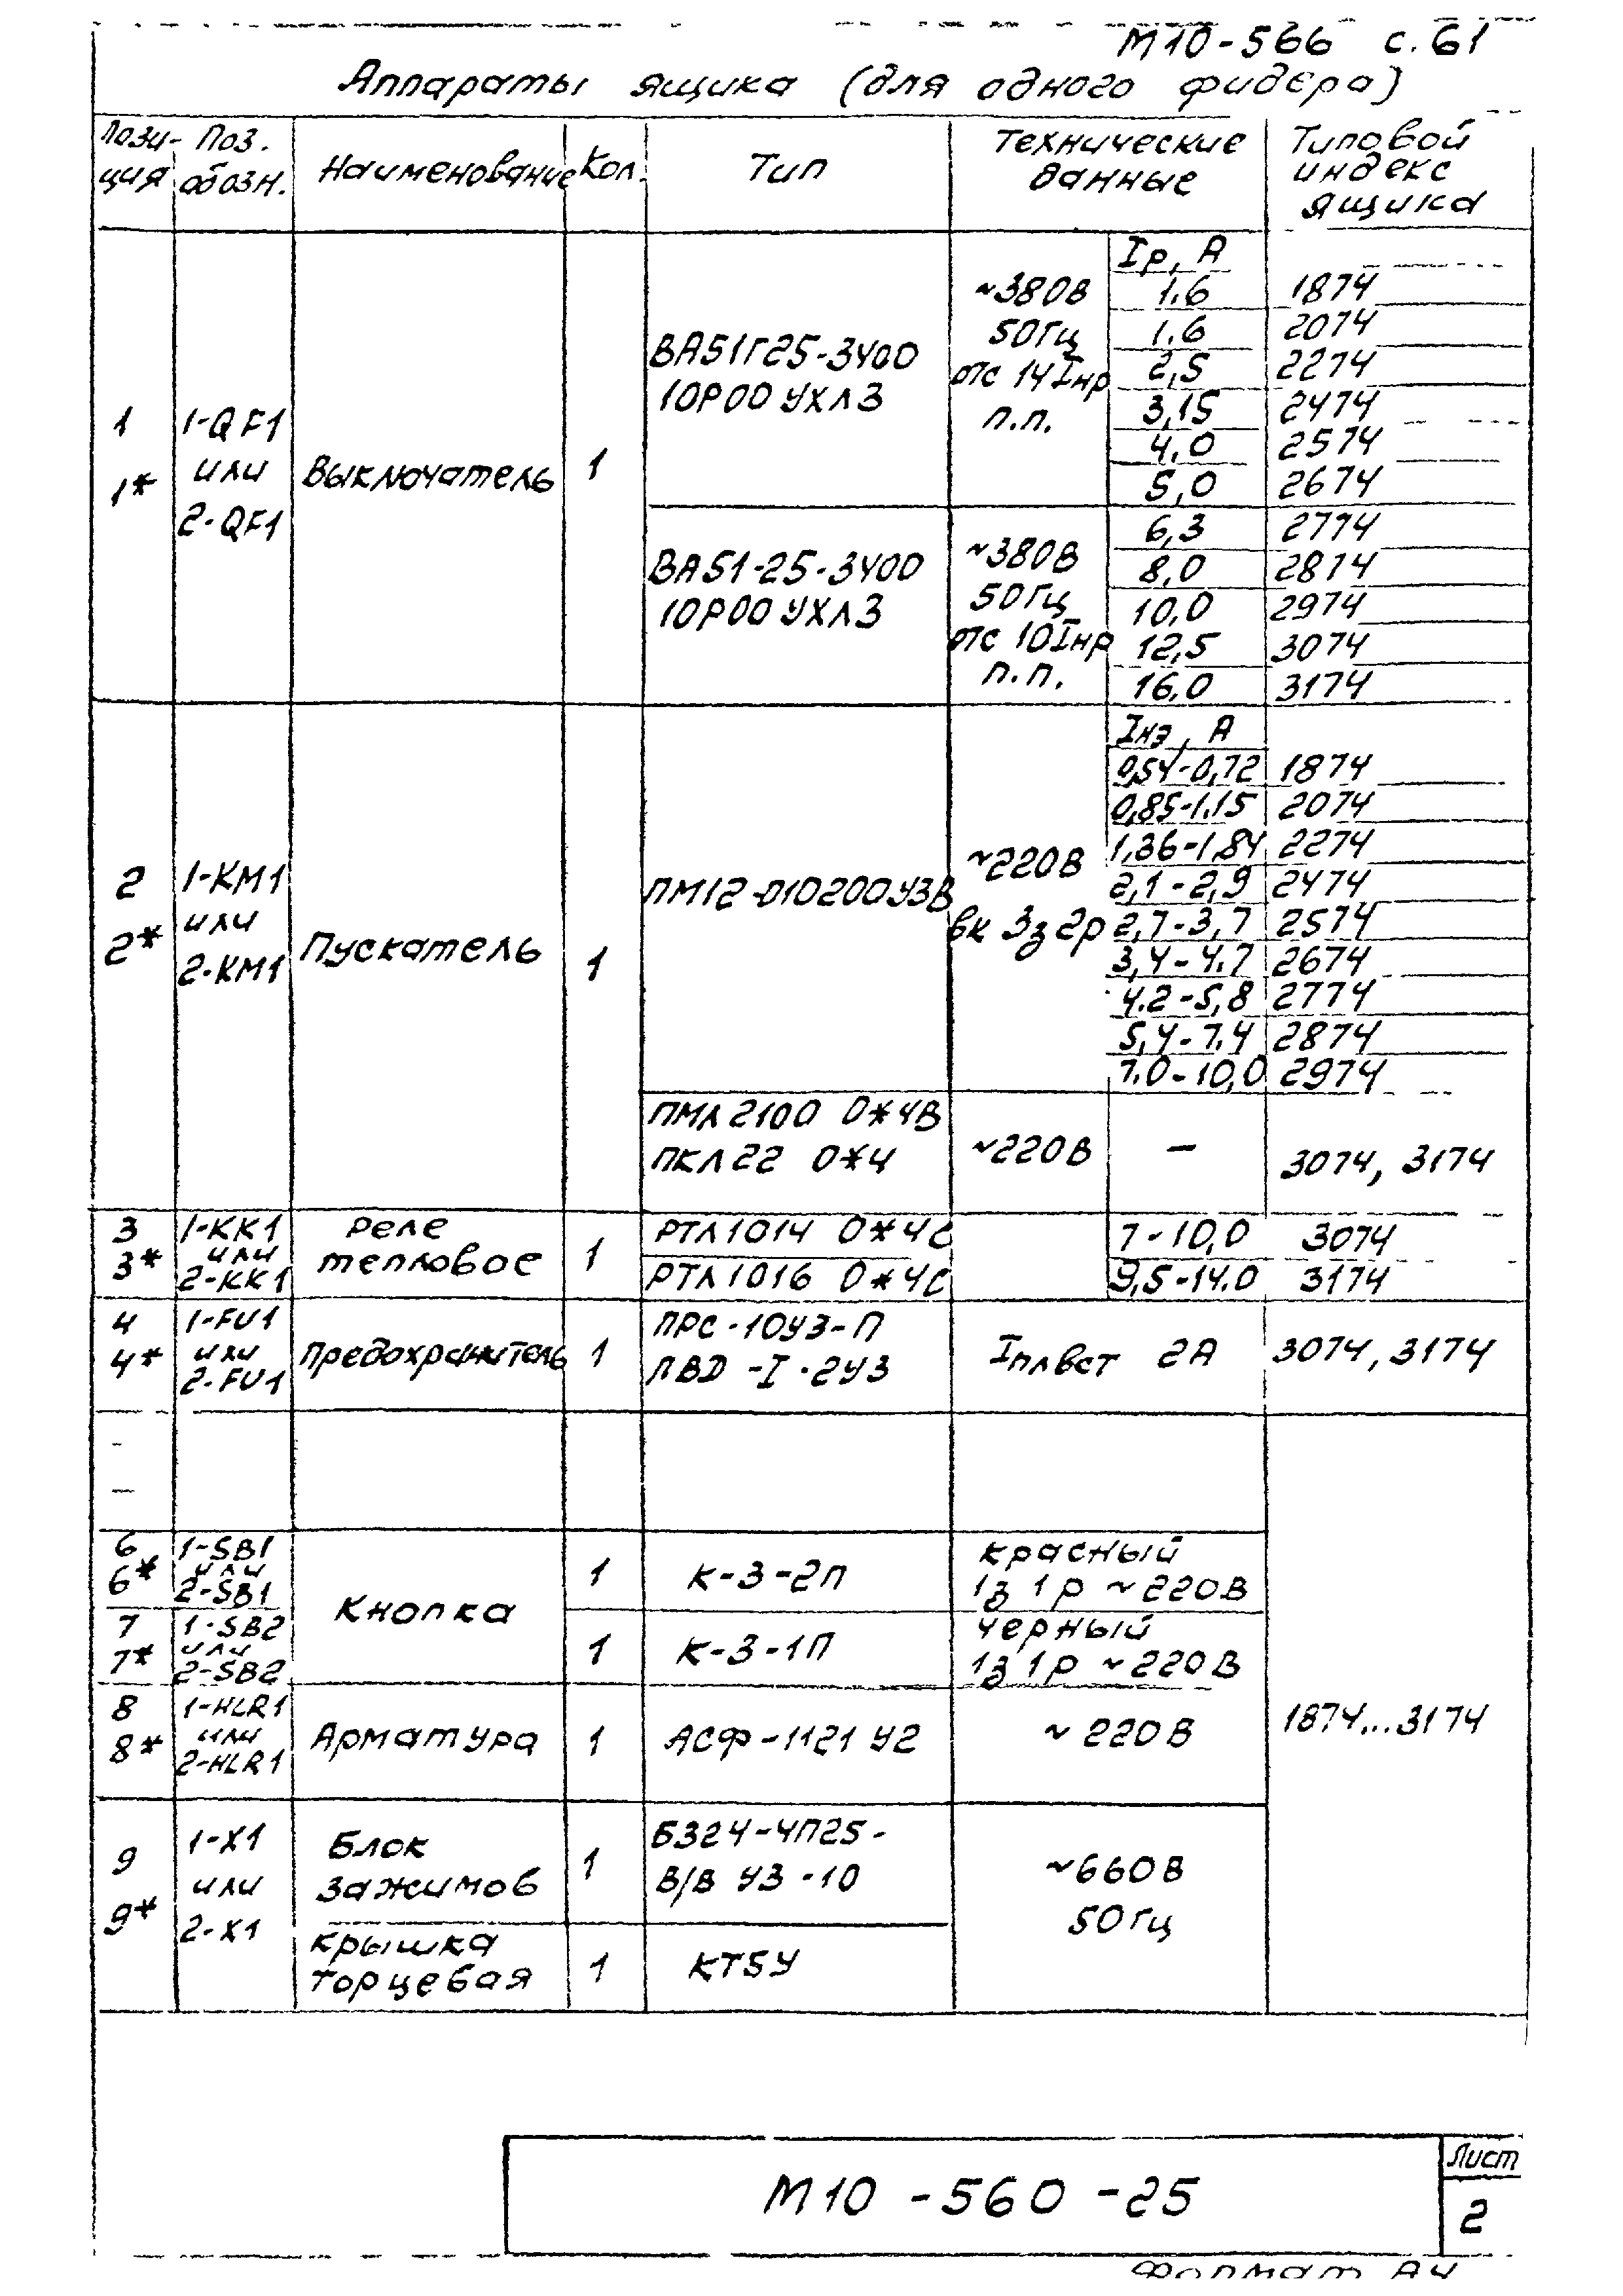 М10-566 с.61
Аппараты ящика (для одного фидера)
Позиция Поз. обозн. Наименование Кол. Тип Технические данные Типовой индекс ящика
1
1*
1-QF1
или
2-QF1
Выключатель
1
ВА51Г25-3400
10Р00 УХЛ3
~380В
50Гц
отс 14Iнр
п.п.
Iр, А
1.6 1874
1.6 2074
2,5 2274
3,15 2474
4,0 2574
5,0 2674
ВА51-25-3400
10Р00 УХЛ3
~380В
50Гц
отс 10Iнр
п.п.
6,3 2774
8,0 2874
10,0 2974
12,5 3074
16,0 3174
2
2*
1-КМ1
или
2-КМ1
Пускатель
1
ПМ12-010200У3В
~220В
вк 3з 2р
Iнэ, А
0,54-0,72 1874
0,85-1.15 2074
1,36-1,84 2274
2,1-2,9 2474
2,7-3,7 2574
3,4-4.7 2674
4.2-5,8 2774
5,4-7.4 2874
7.0-10,0 2974
ПМЛ 2100 О*4В
ПКЛ 22 О*4
~220В
—
3074, 3174
3
3*
1-КК1
или
2-КК1
Реле
тепловое
1
РТЛ 1014 О*4С
7-10,0 3074
РТЛ 1016 О*4С
9,5-14.0 3174
4
4*
1-FU1
или
2-FU1
Предохранитель
1
ПРС-10У3-П
ПВД-I-2У3
Iпл вст 2А
3074, 3174
-
—
6
6*
1-SB1
или
2-SB1
Кнопка
1
К-3-2П
красный
1з 1р ~220В
7
7*
1-SB2
или
2-SB2
1
К-3-1П
черный
1з 1р ~220В
8
8*
1-HLR1
или
2-HLR1
Арматура
1
АСФ-1121 У2
~220В
1874...3174
9
9*
1-Х1
или
2-Х1
Блок
зажимов
1
Б324-4П25-
В/В У3-10
~660В
50Гц
крышка
торцевая
1
КТ5У
М10-560-25
Лист
2
Формат А4